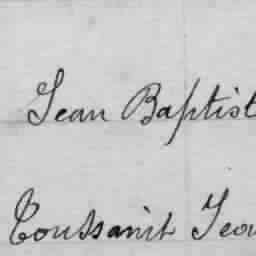 Jean Baptist
Toussaint Jean